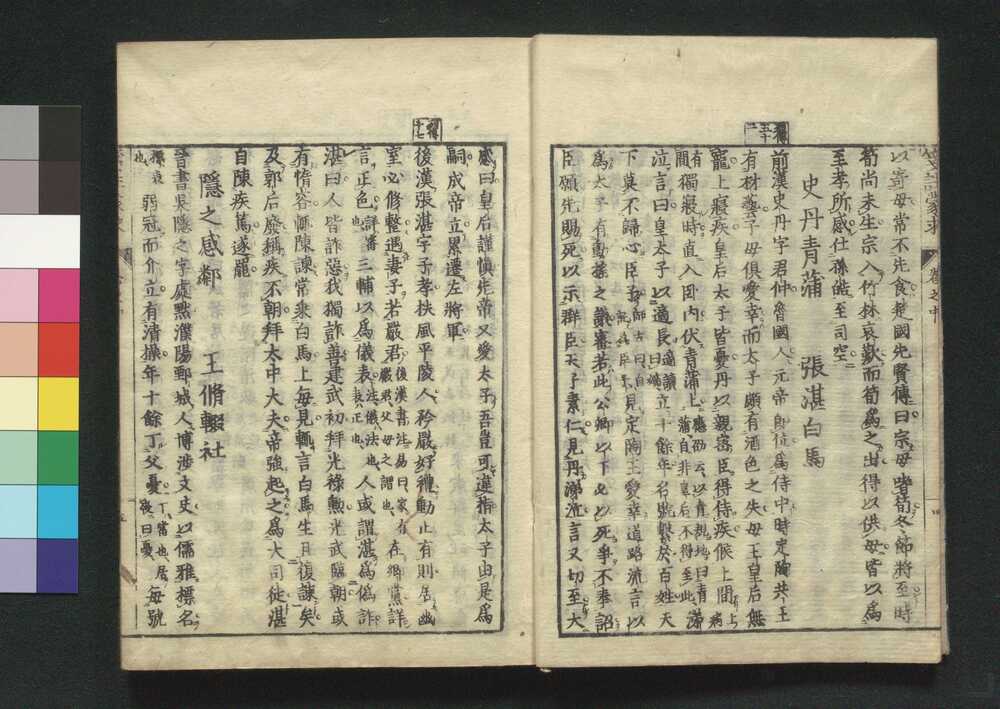 以寄母常不先食楚國先賢傳曰宗母嗜筍冬節將至時
筍尚未生宗入竹林哀歎而筍爲之出得以供母皆以爲
至孝所感仕孫皓至司空
史丹青蒲　張湛白馬
前漢史丹字君仲魯國人元帝即位爲侍中時定陶共王
有材藝子母俱愛幸而太子頗有酒色之失母王皇后無
寵上寢疾皇后太子皆憂丹以親密臣得侍疾候上間
獨寢時直入臥内伏青蒲上
應劭云以青規地曰青
蒲自非皇后不得至此
涕
泣言曰皇太子以適長
立十餘年名號繫於百姓天
下莫不歸心臣子
見定陶王愛幸道路流言以
爲太子有動搖之議審若此公卿以下必以死爭不奉詔
臣願先賜死以示群臣天子素仁見丹涕流言又切至大
感曰皇后謹愼先帝又愛太子吾豈可違指太子由是爲
嗣成帝立累遷左將軍
後漢張湛字子孝扶風平陵人矜嚴好禮動止有則居幽
室必修整遇妻子若嚴君
後漢書注易曰家有
嚴君父母之謂也
在鄉黨詳
言正色
三輔以爲儀表
人或謂湛爲僞詐
湛曰人皆詐惡我獨詐善建武初拜光祿勳光武臨朝或
有惰容輒陳諫常乘白馬上毎見輒言白馬生且復諫矣
及郭后廢稱疾不朝拜太中大夫帝強起之爲大司徒湛
自陳疾篤遂罷
隱之感鄰　王脩輟社
晉書吳隱之字處默濮陽鄄城人博涉文史以儒雅標名
弱冠而介立有清操年十餘丁父憂
毎號